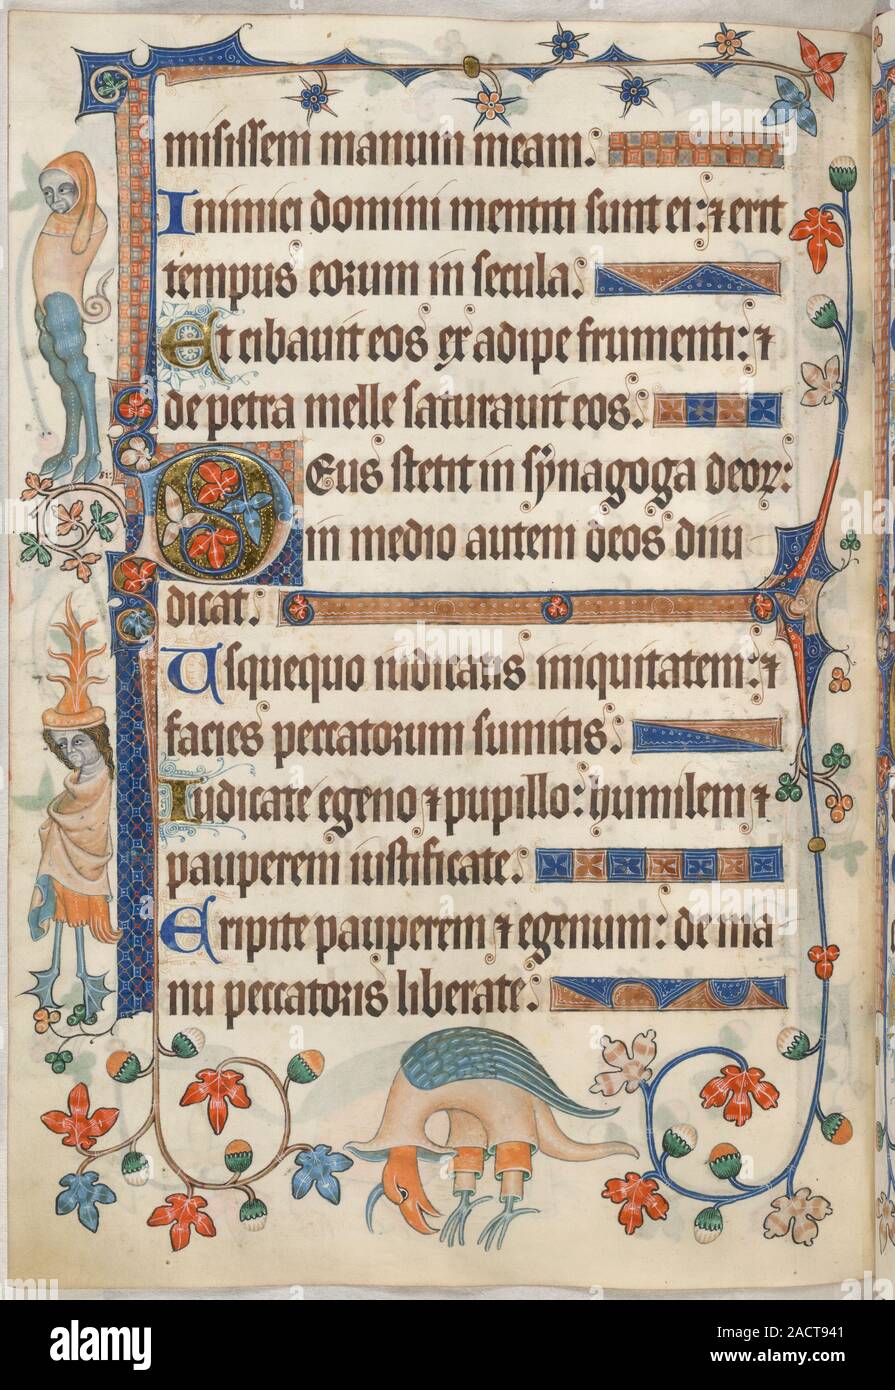 misissem manum meam.
Inimici domini mentiti sunt ei: ⁊ erit
tempus eorum in secula.
Et cibauit eos ex adipe frumenti: ⁊
de petra melle saturauit eos.
81.
Deus stetit in synagoga deoꝝ:
in medio autem deos diiu
dicat.
Usquequo iudicatis iniquitatem: ⁊
facies peccatorum sumitis.
Iudicate egeno ⁊ pupillo: humilem ⁊
pauperem iustificate.
Eripite pauperem ⁊ egenum: de ma
nu peccatoris liberate.
alamy
Image ID: 2ACT941
www.alamy.com